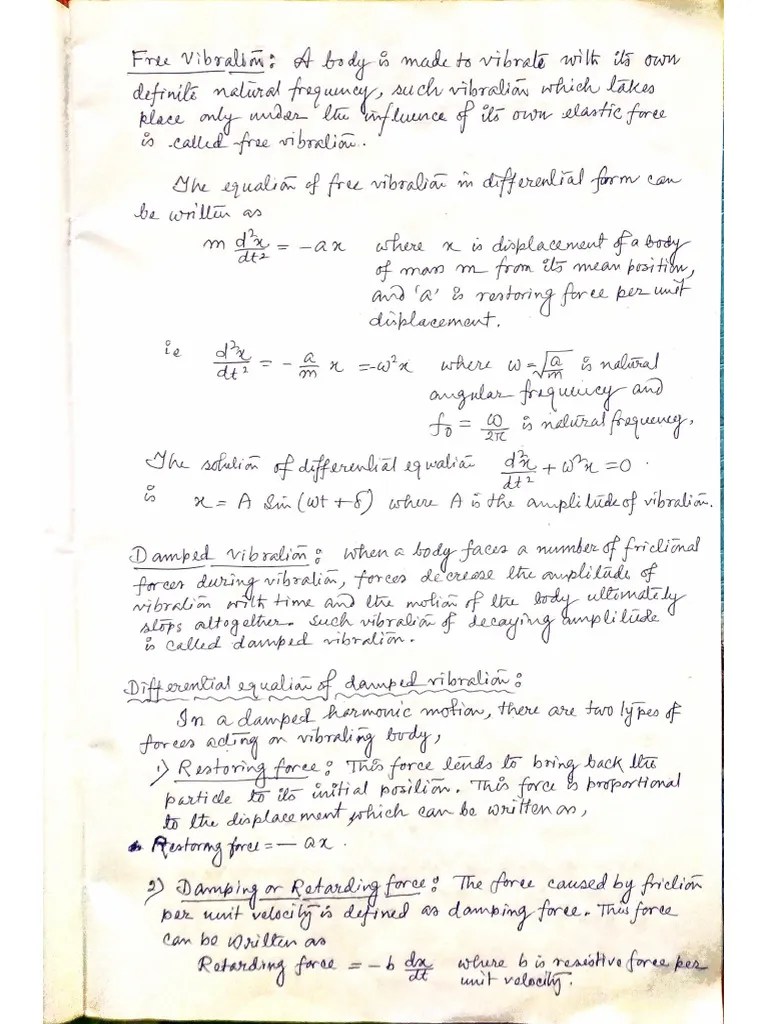 Free Vibration: A body is made to vibrate with its own
definite natural frequency, such vibration which takes
place only under the influence of its own elastic force
is called free vibration.
The equation of free vibration in differential form can
be written as
m d²x/dt² = -ax where x is displacement of a body
of mass m from its mean position,
and 'a' is restoring force per unit
displacement.
ie d²x/dt² = - a/m x = -ω²x where ω = √a/m is natural
angular frequency and
f₀ = ω/2π is natural frequency,
The solution of differential equation d²x/dt² + ω²x = 0.
is x = A Sin (ωt + δ) where A is the amplitude of vibration.
Damped vibration: when a body faces a number of frictional
forces during vibration, forces decrease the amplitude of
vibration with time and the motion of the body ultimately
stops altogether. Such vibration of decaying amplitude
is called damped vibration.
Differential equation of damped vibration:
In a damped harmonic motion, there are two types of
forces acting on vibrating body,
1) Restoring force: This force tends to bring back the
particle to its initial position. This force is proportional
to the displacement, which can be written as,
Restoring force = - ax.
2) Damping or Retarding force: The force caused by friction
per unit velocity is defined as damping force. This force
can be written as
Retarding force = -b dx/dt where b is resistive force per
unit velocity.